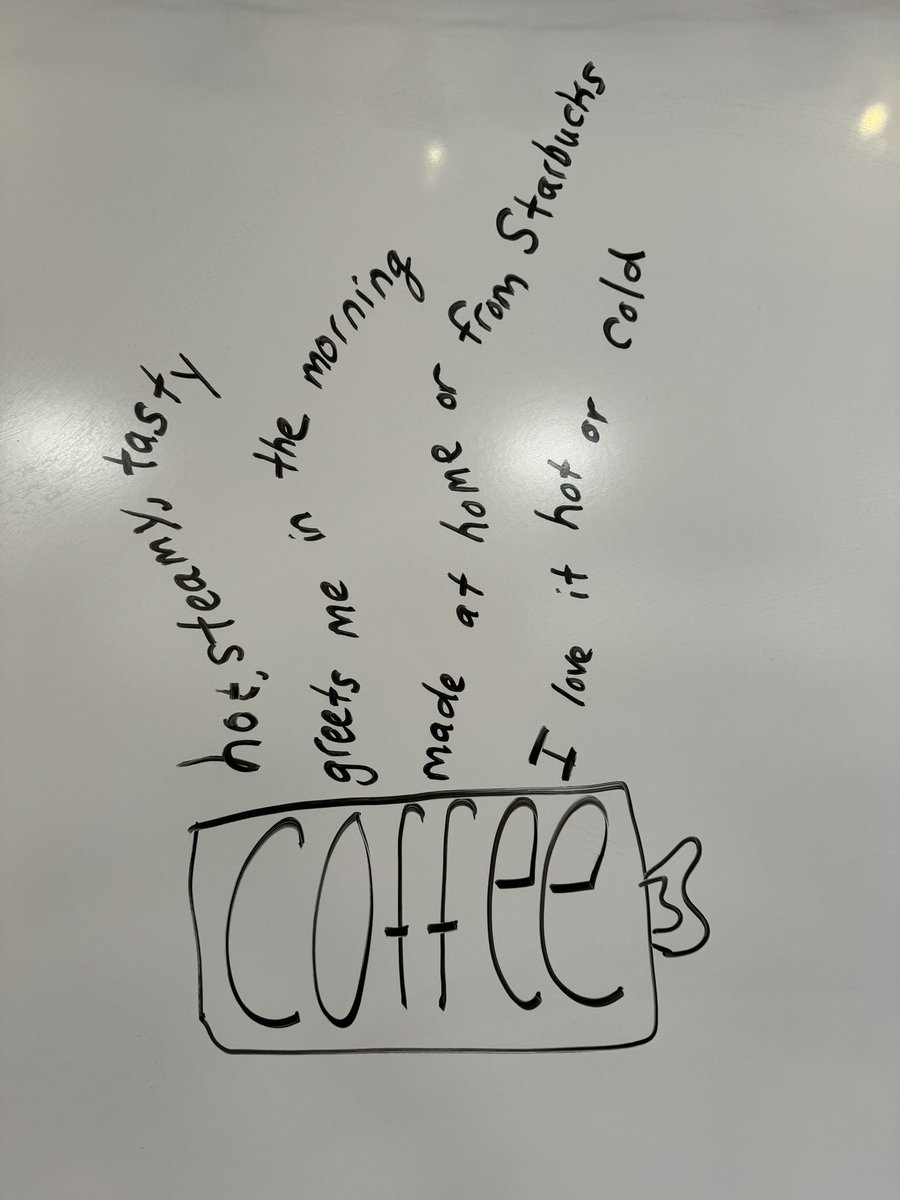 hot, steamy, tasty
greets me in the morning
made at home or from Starbucks
I love it hot or cold
coffee